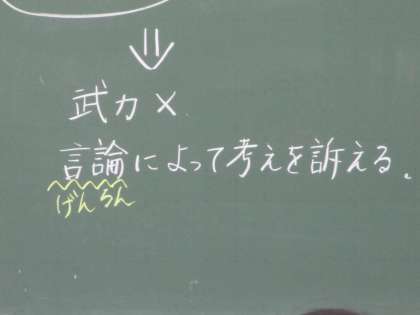 ⇓
武力×
言論によって考えを訴える。
げんろん